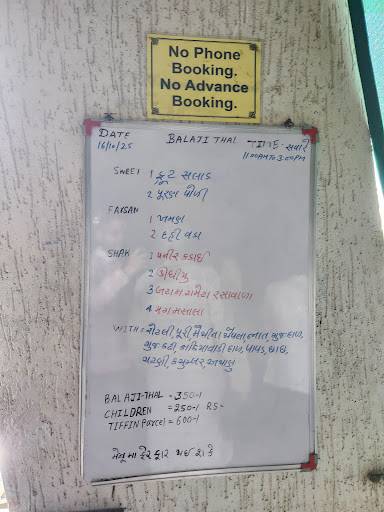 No Phone
Booking.
No Advance
Booking.
DATE BALAJI THAL TIME: સવારે
16/10/25 11:00AM TO 3:00PM
SWEET 1 ફ્રુટ સલાડ
2 પૂરણ પોળી
FARSAN
1 ખમણ
2 દહીં વડા
SHAK 1 પનીર કડાઈ
2 ઊંધીયુ
3 રસાવાળા
4 મગ મસાલા
WITH = રોટલી, પૂરી, ભાત, ગુજ દાળ,
ગુજ કઢી, કાઠિયાવાડી દાળ, પાપડ, છાશ,
ચટણી, કચુંબર, અથાણુ
BALAJI-THAL = 350-/
CHILDREN = 250-/ RS-
TIFFIN Parcel = 600-/
મેનૂ મા ફેર ફાર થઈ શકે